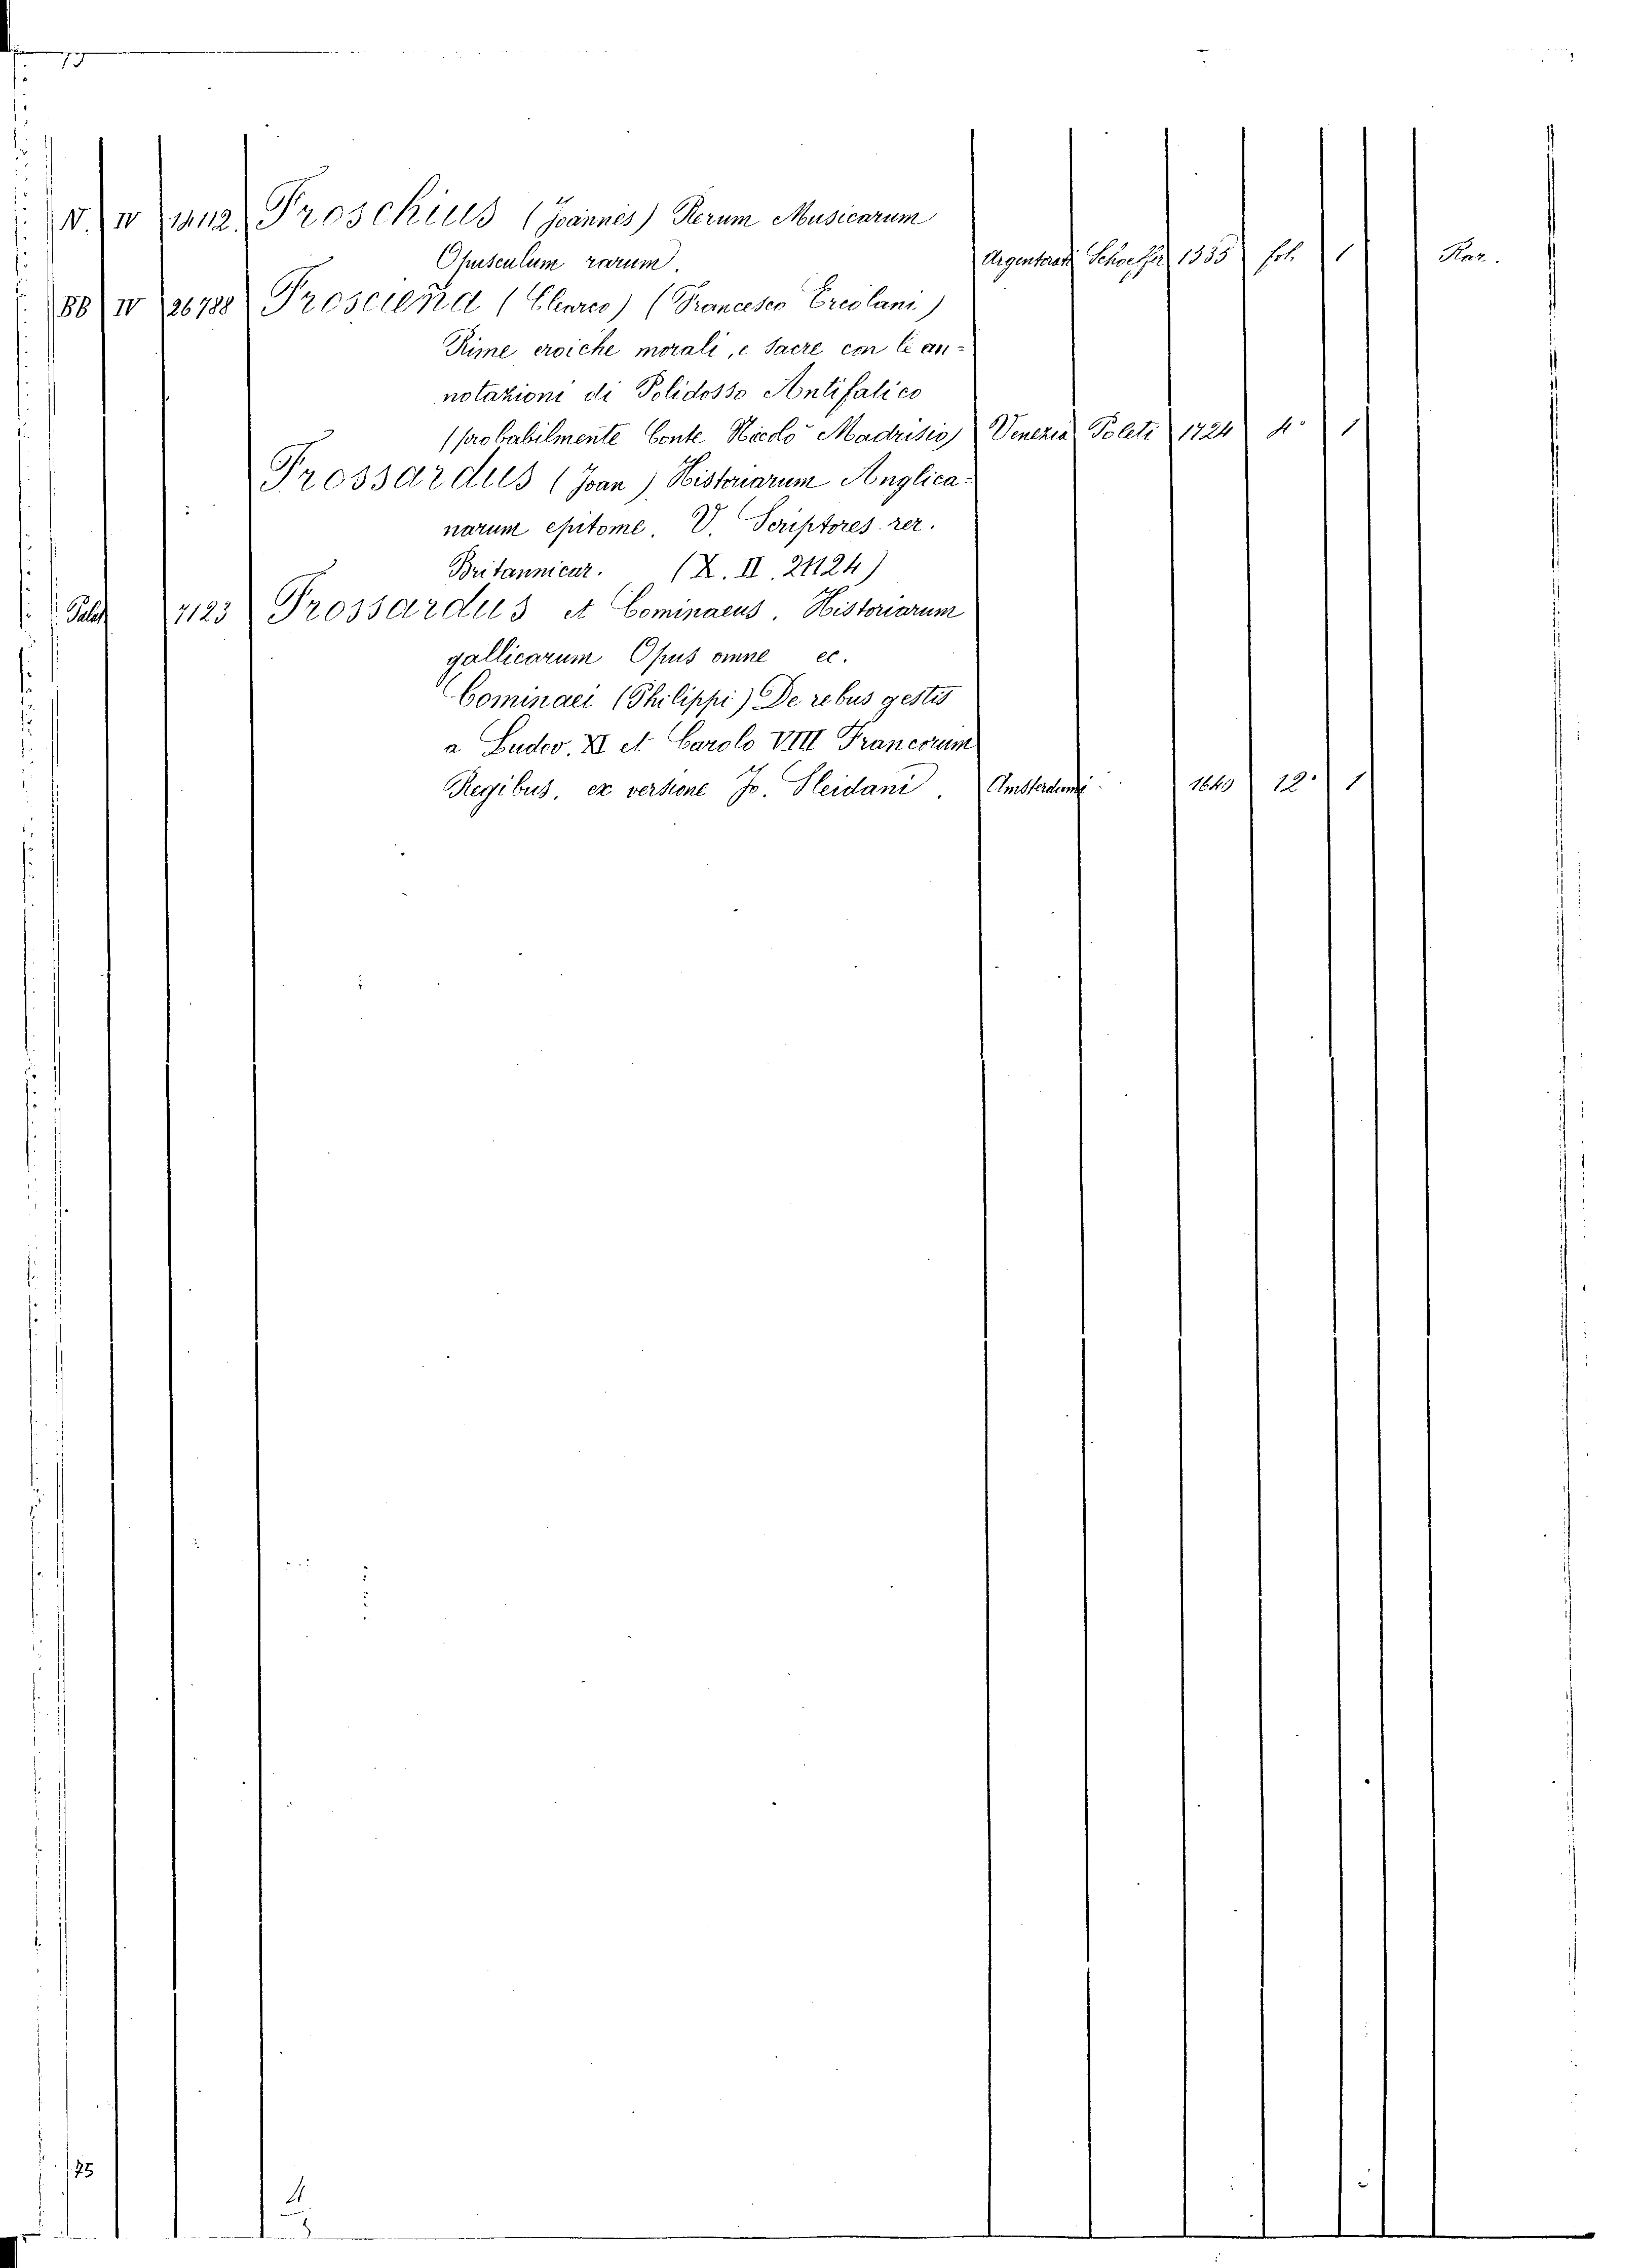 N. IV Froschius (Joannes) Rerum Musicarum
Opusculum rarum. Argentorati Schoeffer 1535 fol. 1 Rar.
BB IV 26788 Froscienà (Clearco) (Francesco Ercolani)
Rime eroiche morali, e sacre con le an-
notazioni di Polidosso Antifalico
(probabilmente Conte Nicolò Madrisio) Venezia Poleti 1724 4° 1
Frossardus (Joan) Historiarum Anglica-
narum epitome. V. Scriptores rer.
Britannicar. (X. II. 21124)
Palat 7123 Frossardus et Cominaeus. Historiarum
gallicarum Opus omne ec.
Cominaei (Philippi) De rebus gestis
a Ludov. XI et Carolo VIII Francorum
Regibus, ex versione Jo. Sleidani. Amsterdami 1640 12° 1
4